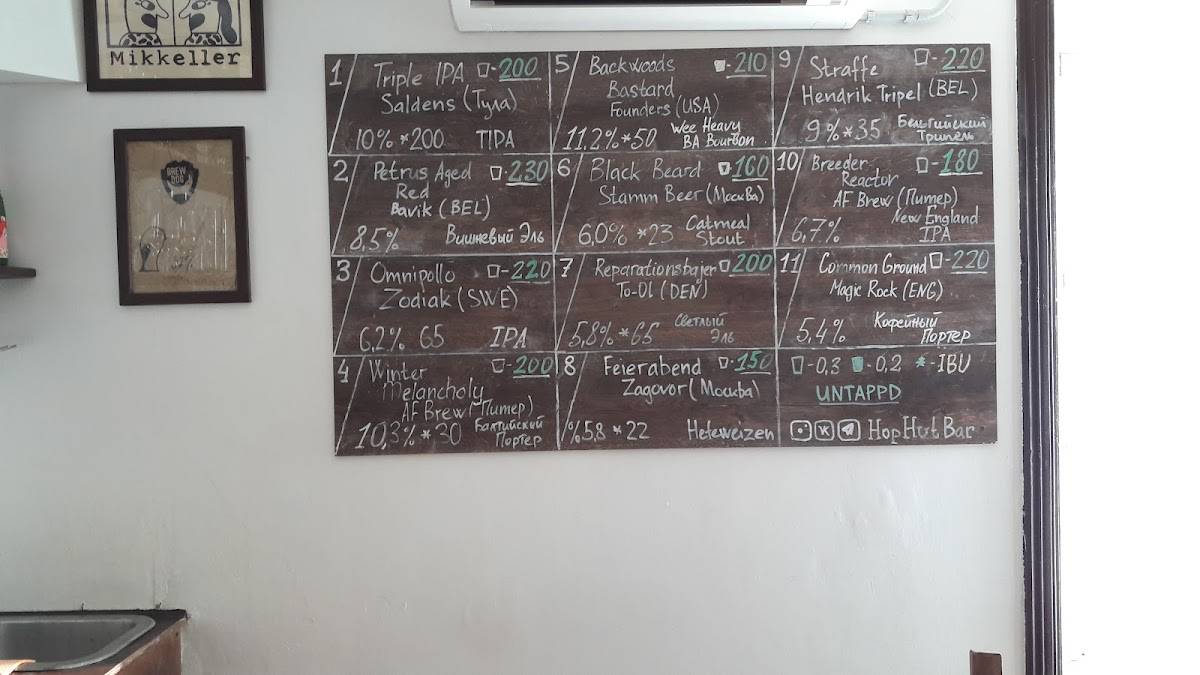 Mikkeller
BREW
DOG
1 Triple IPA - 200
Saldens (Тула)
10% *200 TIPA
2 Petrus Aged - 230
Red
Bavik (BEL)
8,5% Вишневый Эль
3 Omnipollo - 220
Zodiak (SWE)
6,2% 65 IPA
4 Winter - 200
Melancholy
AF Brew (Питер)
10,3% *30 Балтийский
Портер
5 Backwoods - 210
Bastard
Founders (USA)
11,2% *50 Wee Heavy
BA Bourbon
6 Black Beard - 160
Stamm Beer (Москва)
6,0% *23 Oatmeal
Stout
7 Reparationsbajer 200
To-Ol (DEN)
5,8% *65 Светлый
Эль
8 Feierabend - 150
Zagovor (Москва)
%5,8 *22 Hefeweizen
9 Straffe - 220
Hendrik Tripel (BEL)
9% *35 Бельгийский
Трипель
10 Breeder - 180
Reactor
AF Brew (Питер)
6,7% New England
IPA
11 Common Ground - 220
Magic Rock (ENG)
5,4% Кофейный
Портер
- 0,3 - 0,2 * - IBU
UNTAPPD
HopHut Bar